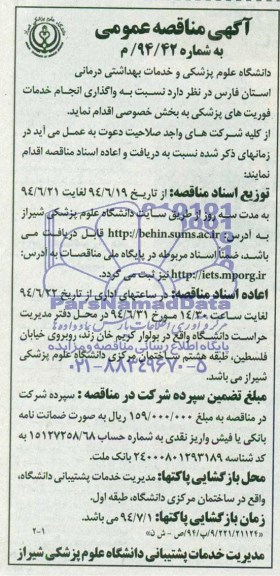 آگهی مناقصه عمومی
به شماره ۹۴/۴۲/ م
دانشگاه علوم پزشکی و خدمات بهداشتی درمانی
استان فارس در نظر دارد نسبت به واگذاری انجام خدمات
فوریت های پزشکی به بخش خصوصی اقدام نماید.
از کلیه شرکت های واجد صلاحیت دعوت به عمل می آید در
زمانهای ذکر شده نسبت به دریافت و اعاده اسناد مناقصه اقدام
نمایند:
توزیع اسناد مناقصه: از تاریخ ۹۴/۶/۱۹ لغایت ۹۴/۶/۲۱
به مدت سه روز از طریق سایت دانشگاه علوم پزشکی شیراز
به آدرس: http://behin.sums.ac.ir قابل دریافت می
باشد، ضمناً اسناد مربوطه در پایگاه ملی مناقصات به آدرس:
http://iets.mporg.ir نیز ثبت می گردد.
اعاده اسناد مناقصه: در ساعتهای اداری از تاریخ ۹۴/۶/۲۲
لغایت ساعت ۱۴/۳۰ مورخ ۹۴/۶/۳۱ در محل دفتر مدیریت
حراست دانشگاه واقع در بولوار کریم خان زند، روبروی خیابان
فلسطین، طبقه هشتم ساختمان مرکزی دانشگاه علوم پزشکی
شیراز می باشد.
مبلغ تضمین سپرده شرکت در مناقصه : سپرده شرکت
در مناقصه به مبلغ ۱۵۹/۰۰۰/۰۰۰ ریال به صورت ضمانت نامه
بانکی یا فیش واریز نقدی به شماره حساب ۱۵۱۲۷۳۵۸/۶۸ به
کد شناسه ۲۴۰۰۰۸۰۱۲۹۳۱۸۹ بانک ملت.
محل بازگشایی پاکتها: مدیریت خدمات پشتیبانی دانشگاه،
واقع در ساختمان مرکزی دانشگاه، طبقه اول.
زمان بازگشایی پاکتها: ۹۴/۷/۱ می باشد.
مدیریت خدمات پشتیبانی دانشگاه علوم پزشکی شیراز
ParsNamadData
پایگاه اطلاع رسانی مناقصه و مزایده
۰۲۱-۸۸۳۴۹۶۷۰-۵